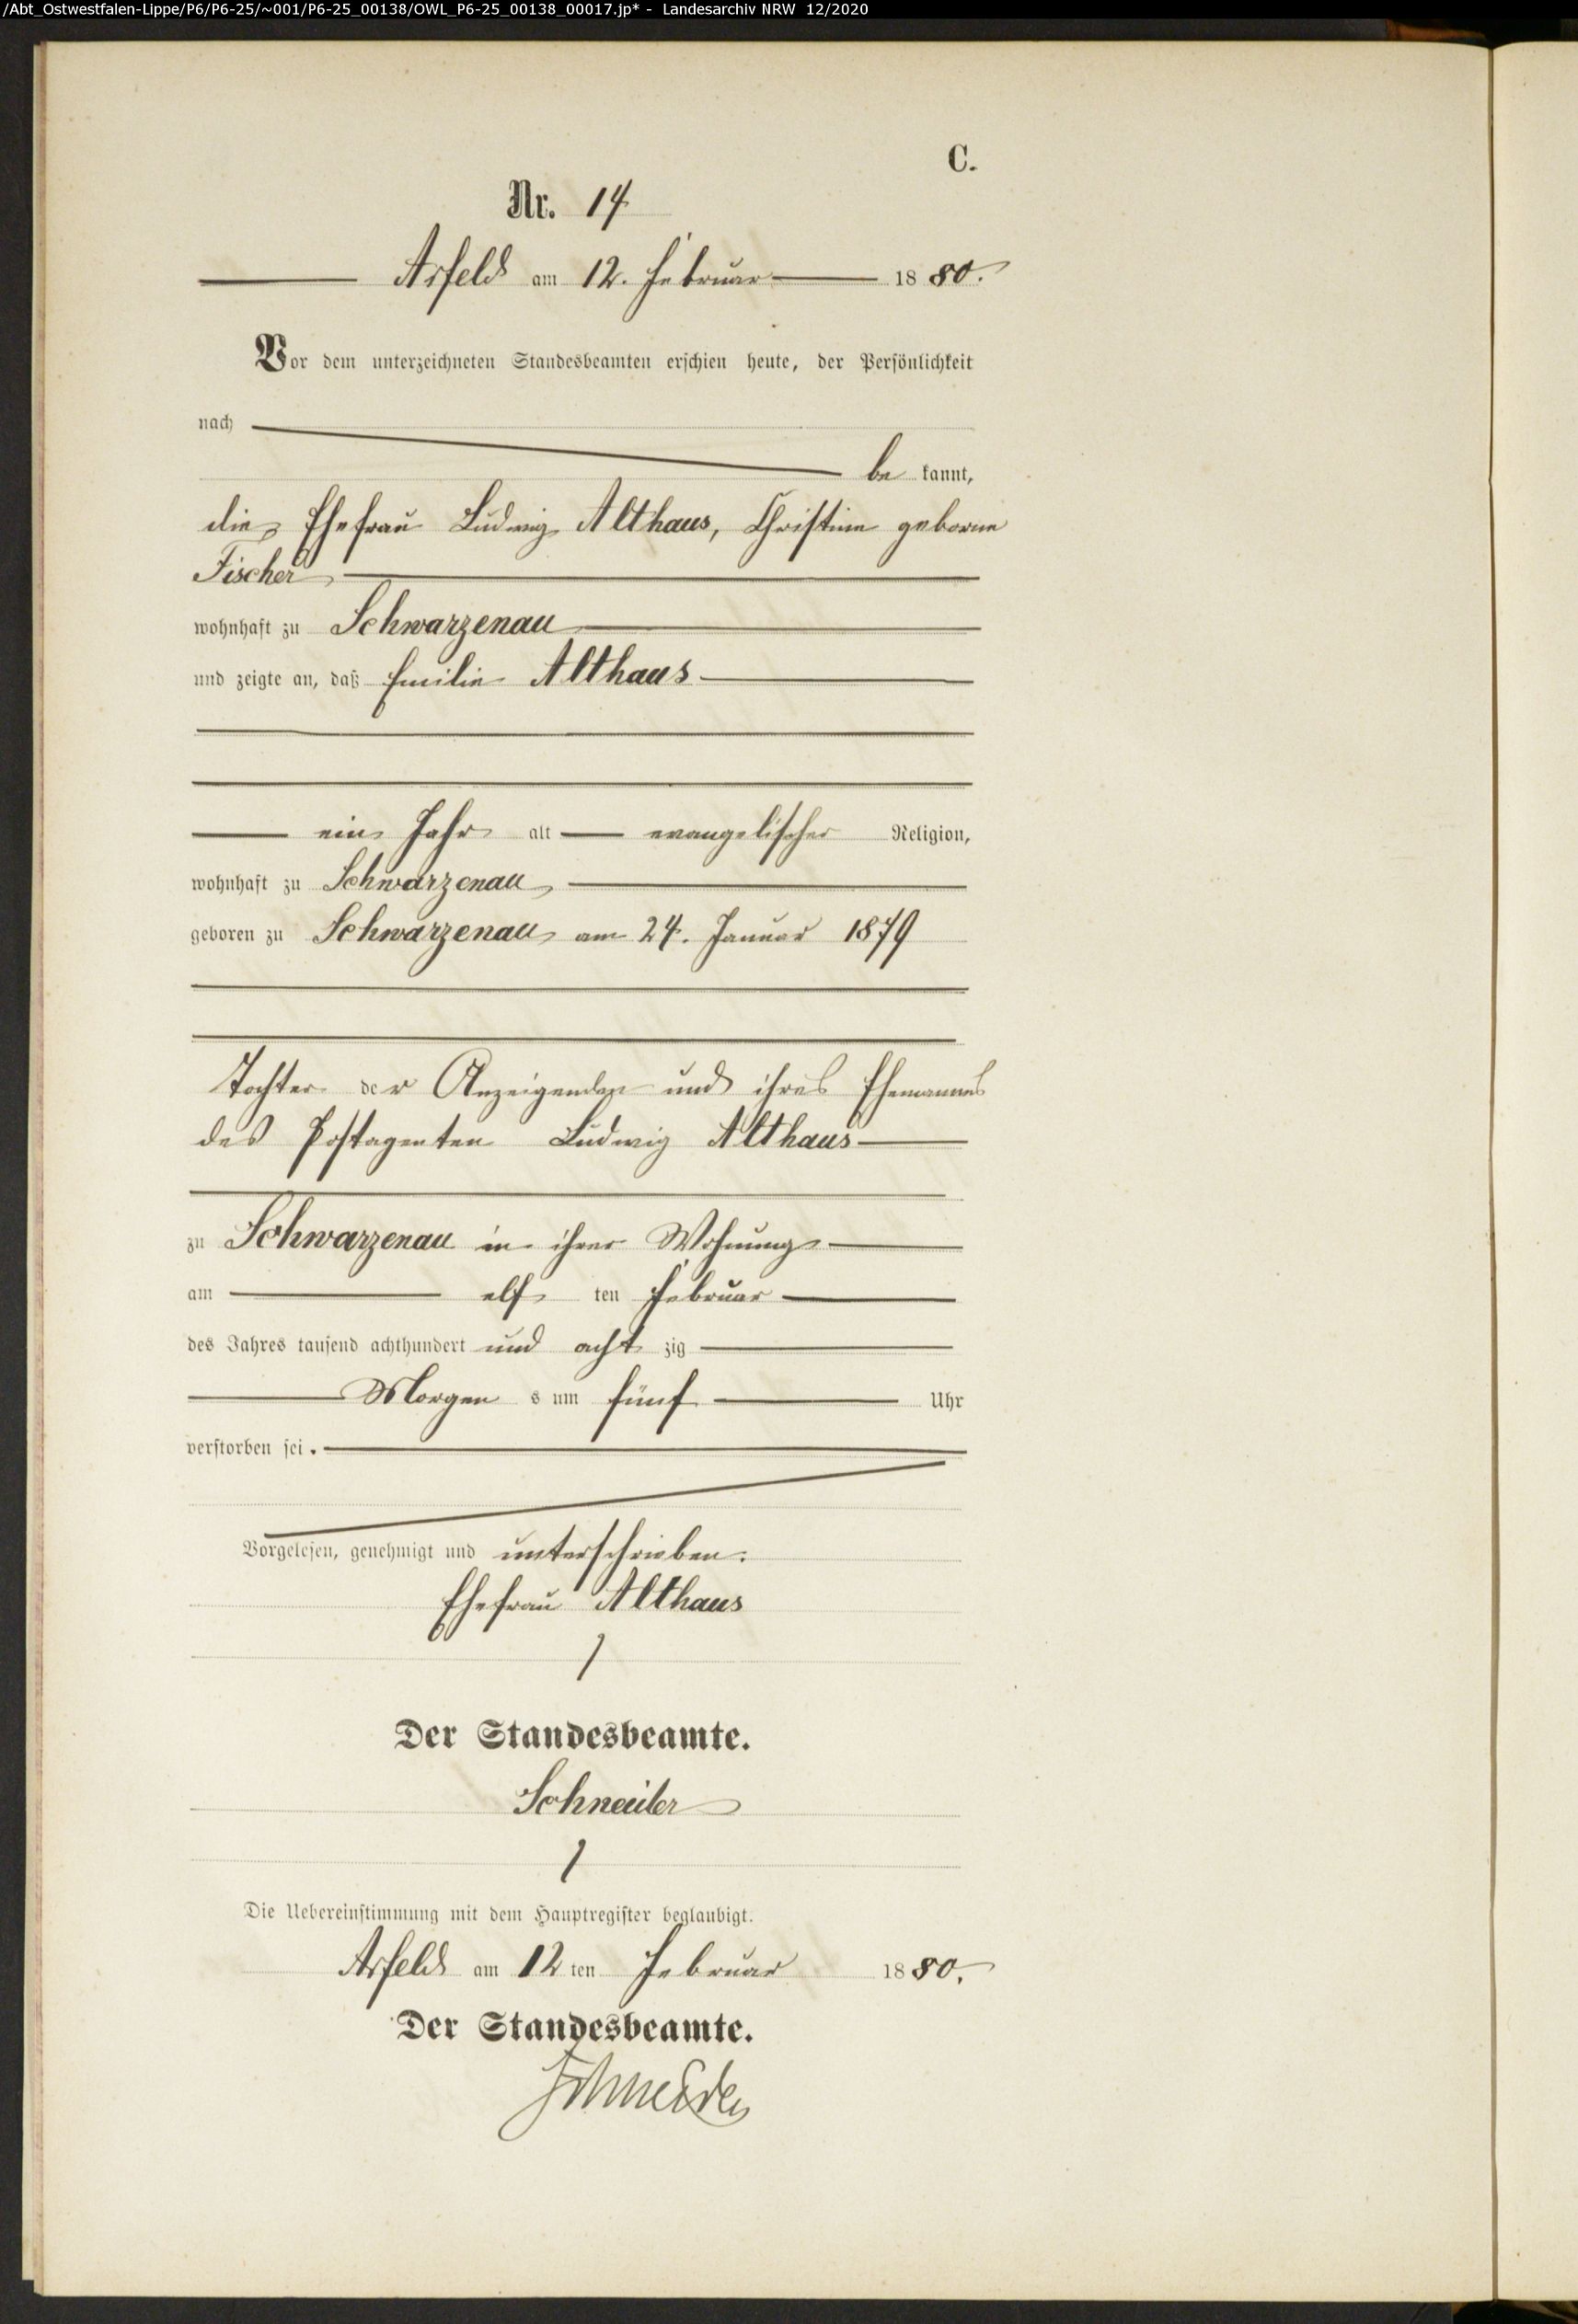 /Abt_Ostwestfalen-Lippe/P6/P6-25/~001/P6-25_00138/OWL_P6-25_00138_00017.jp* - Landesarchiv NRW 12/2020
C.
Nr. 14
Arfeld am 12. Februar 1880.
Vor dem unterzeichneten Standesbeamten erschien heute, der Persönlichkeit
nach
be kannt,
die Ehefrau Ludwig Althaus, Christine geborne
Fischer
wohnhaft zu Schwarzenau
und zeigte an, daß Emilie Althaus
ein Jahr alt evangelischer Religion,
wohnhaft zu Schwarzenau
geboren zu Schwarzenau am 24. Januar 1879
Tochter der Anzeigenden und ihres Ehemannes
des Postagenten Ludwig Althaus
zu Schwarzenau in ihrer Wohnung
am elf ten Februar
des Jahres tausend achthundert und acht zig
Morgen s um fünf Uhr
verstorben sei.
Vorgelesen, genehmigt und unterschrieben.
Ehefrau Althaus
Der Standesbeamte.
Schneider
Die Uebereinstimmung mit dem Hauptregister beglaubigt.
Arfeld am 12 ten Februar 1880.
Der Standesbeamte.
Schneider